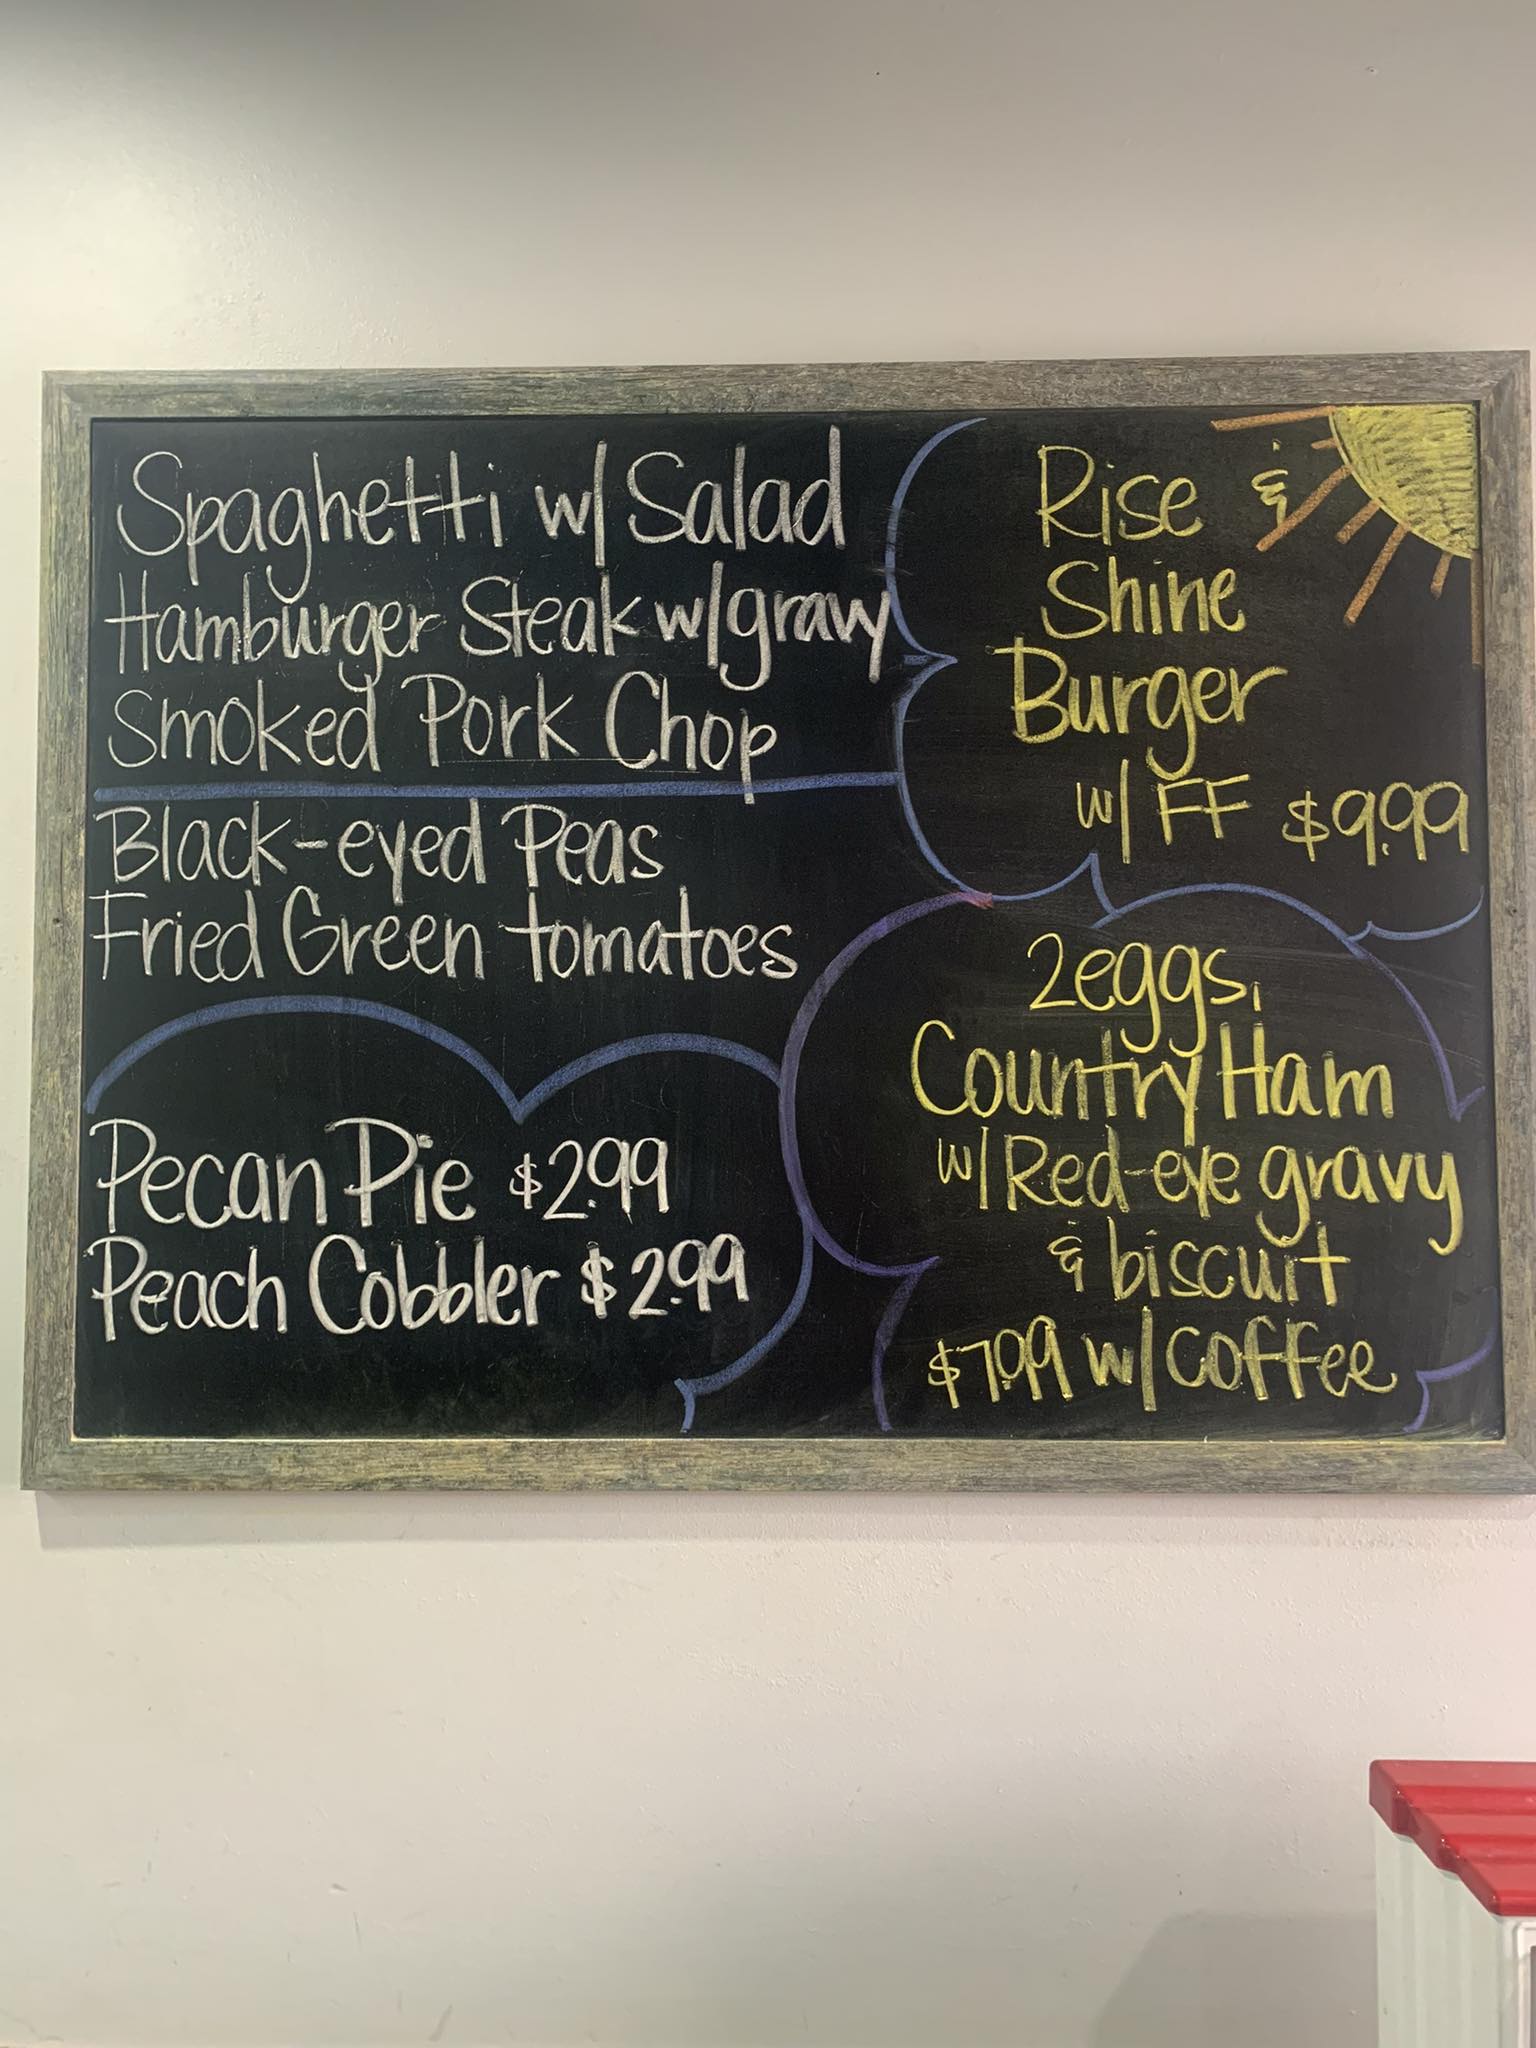 Spaghetti w/ Salad
Hamburger Steak w/gravy
Smoked Pork Chop
Black-eyed Peas
Fried Green tomatoes
Pecan Pie $2.99
Peach Cobbler $2.99
Rise &
Shine
Burger
w/ FF $9.99
2eggs,
Country Ham
w/ Red-eye gravy
& biscuit
$7.99 w/coffee